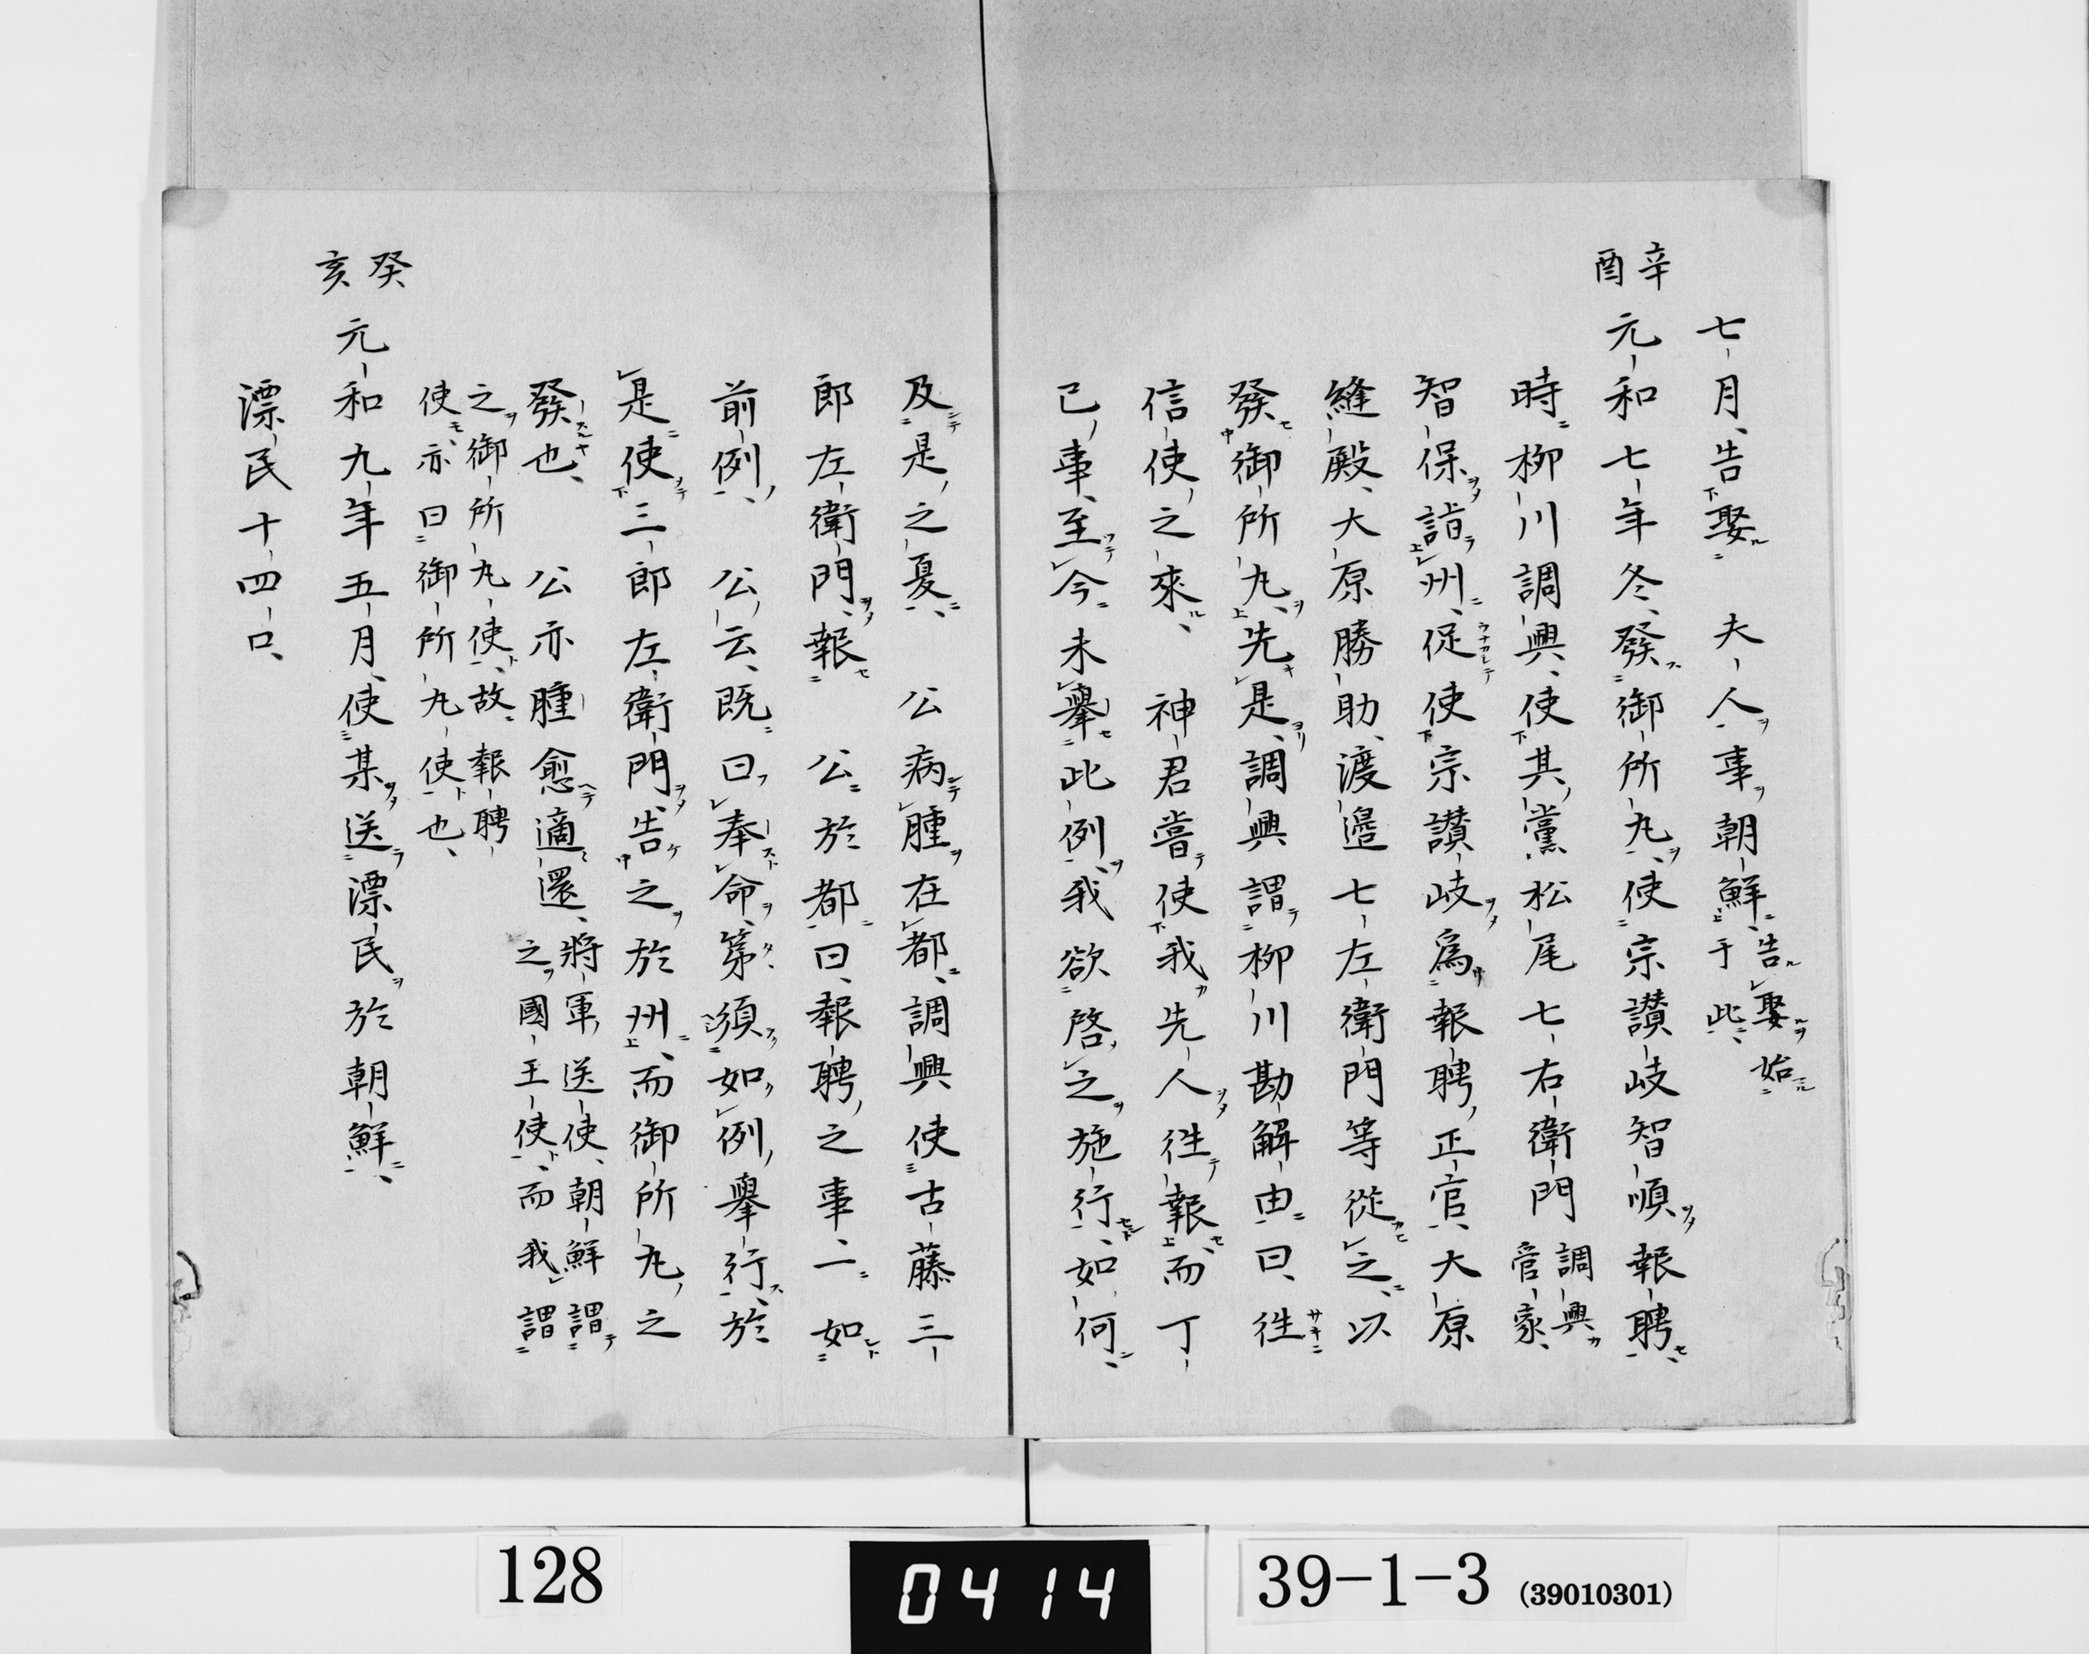 七月告娶　夫人事朝鮮告娶始
于此
辛酉
元和七年冬發御所丸使宗讃岐智順報聘
時柳川調興使其黨松尾七右衛門調興
官家
智保詣州促使宗讃岐爲報聘正官大原
縫殿大原勝助渡邉七左衛門等從之以
發御所丸先是調興謂柳川勘解由曰徃
信使之來　神君嘗使我先人徃報而丁
巳事至今未擧此例我欲啓之施行如何
及是之夏　公病腫在都調興使古藤三
郎左衛門報　公於都曰報聘之事一如
前例　公云既曰奉命第須如例擧行於
是使三郎左衛門告之於州而御所丸之
發也　公亦腫愈適還將軍送使朝鮮謂
之國王使而我謂
之御所丸使故報聘
使亦曰御所丸使也
癸亥
元和九年五月使某送漂民於朝鮮
漂民十四口
128
0414
39-1-3 (39010301)